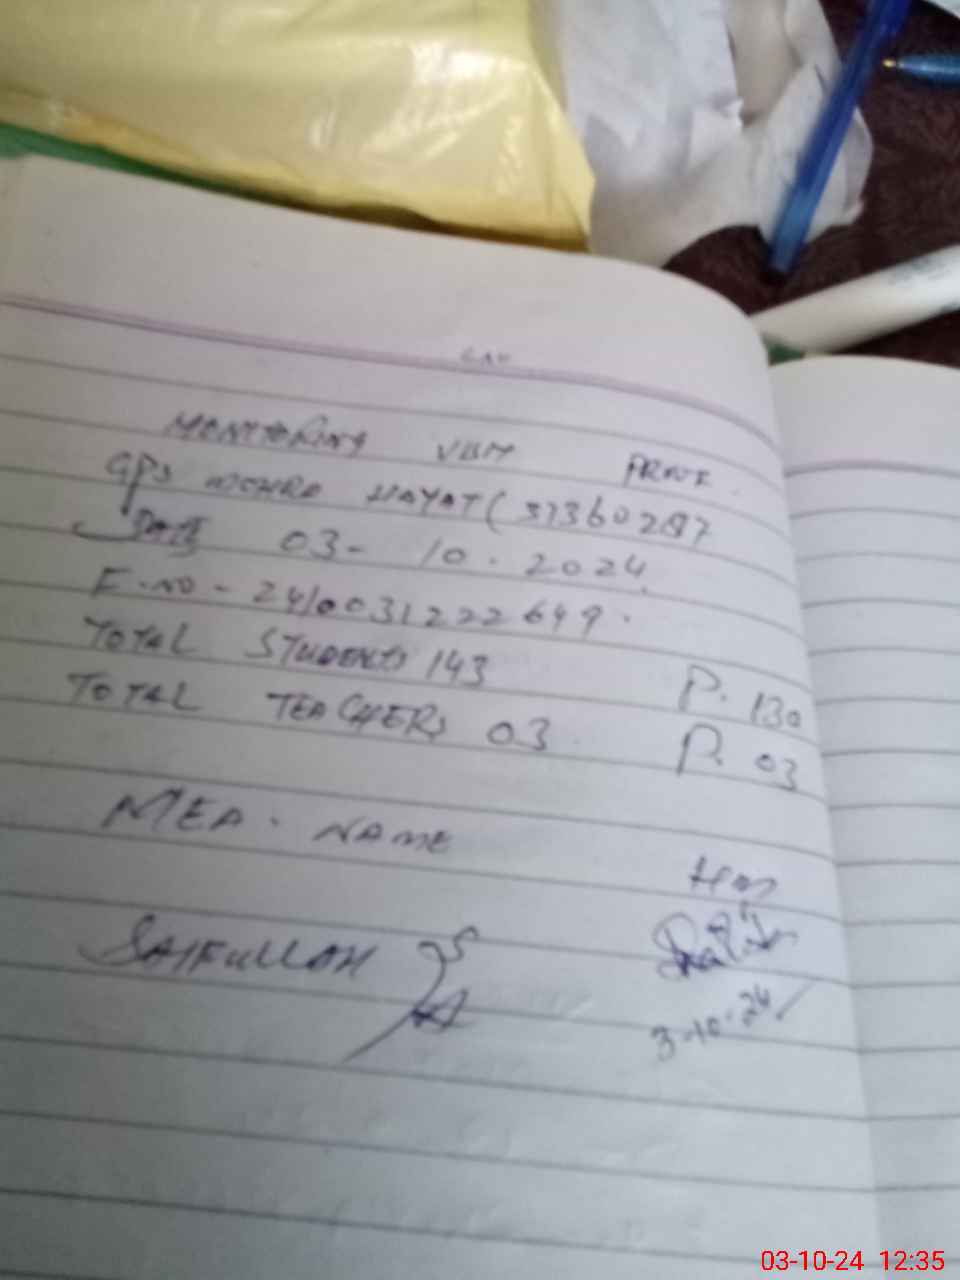 MONITORING VISIT PROVE
GPS MOHRA HAYAT (37360287
DATE 03-10.2024
F.NO - 2410031222649.
TOTAL STUDENTS 143 P. 130
TOTAL TEACHERS 03 P. 03
MEA. NAME
SAIFULLAH
3-10-24
03-10-24 12:35